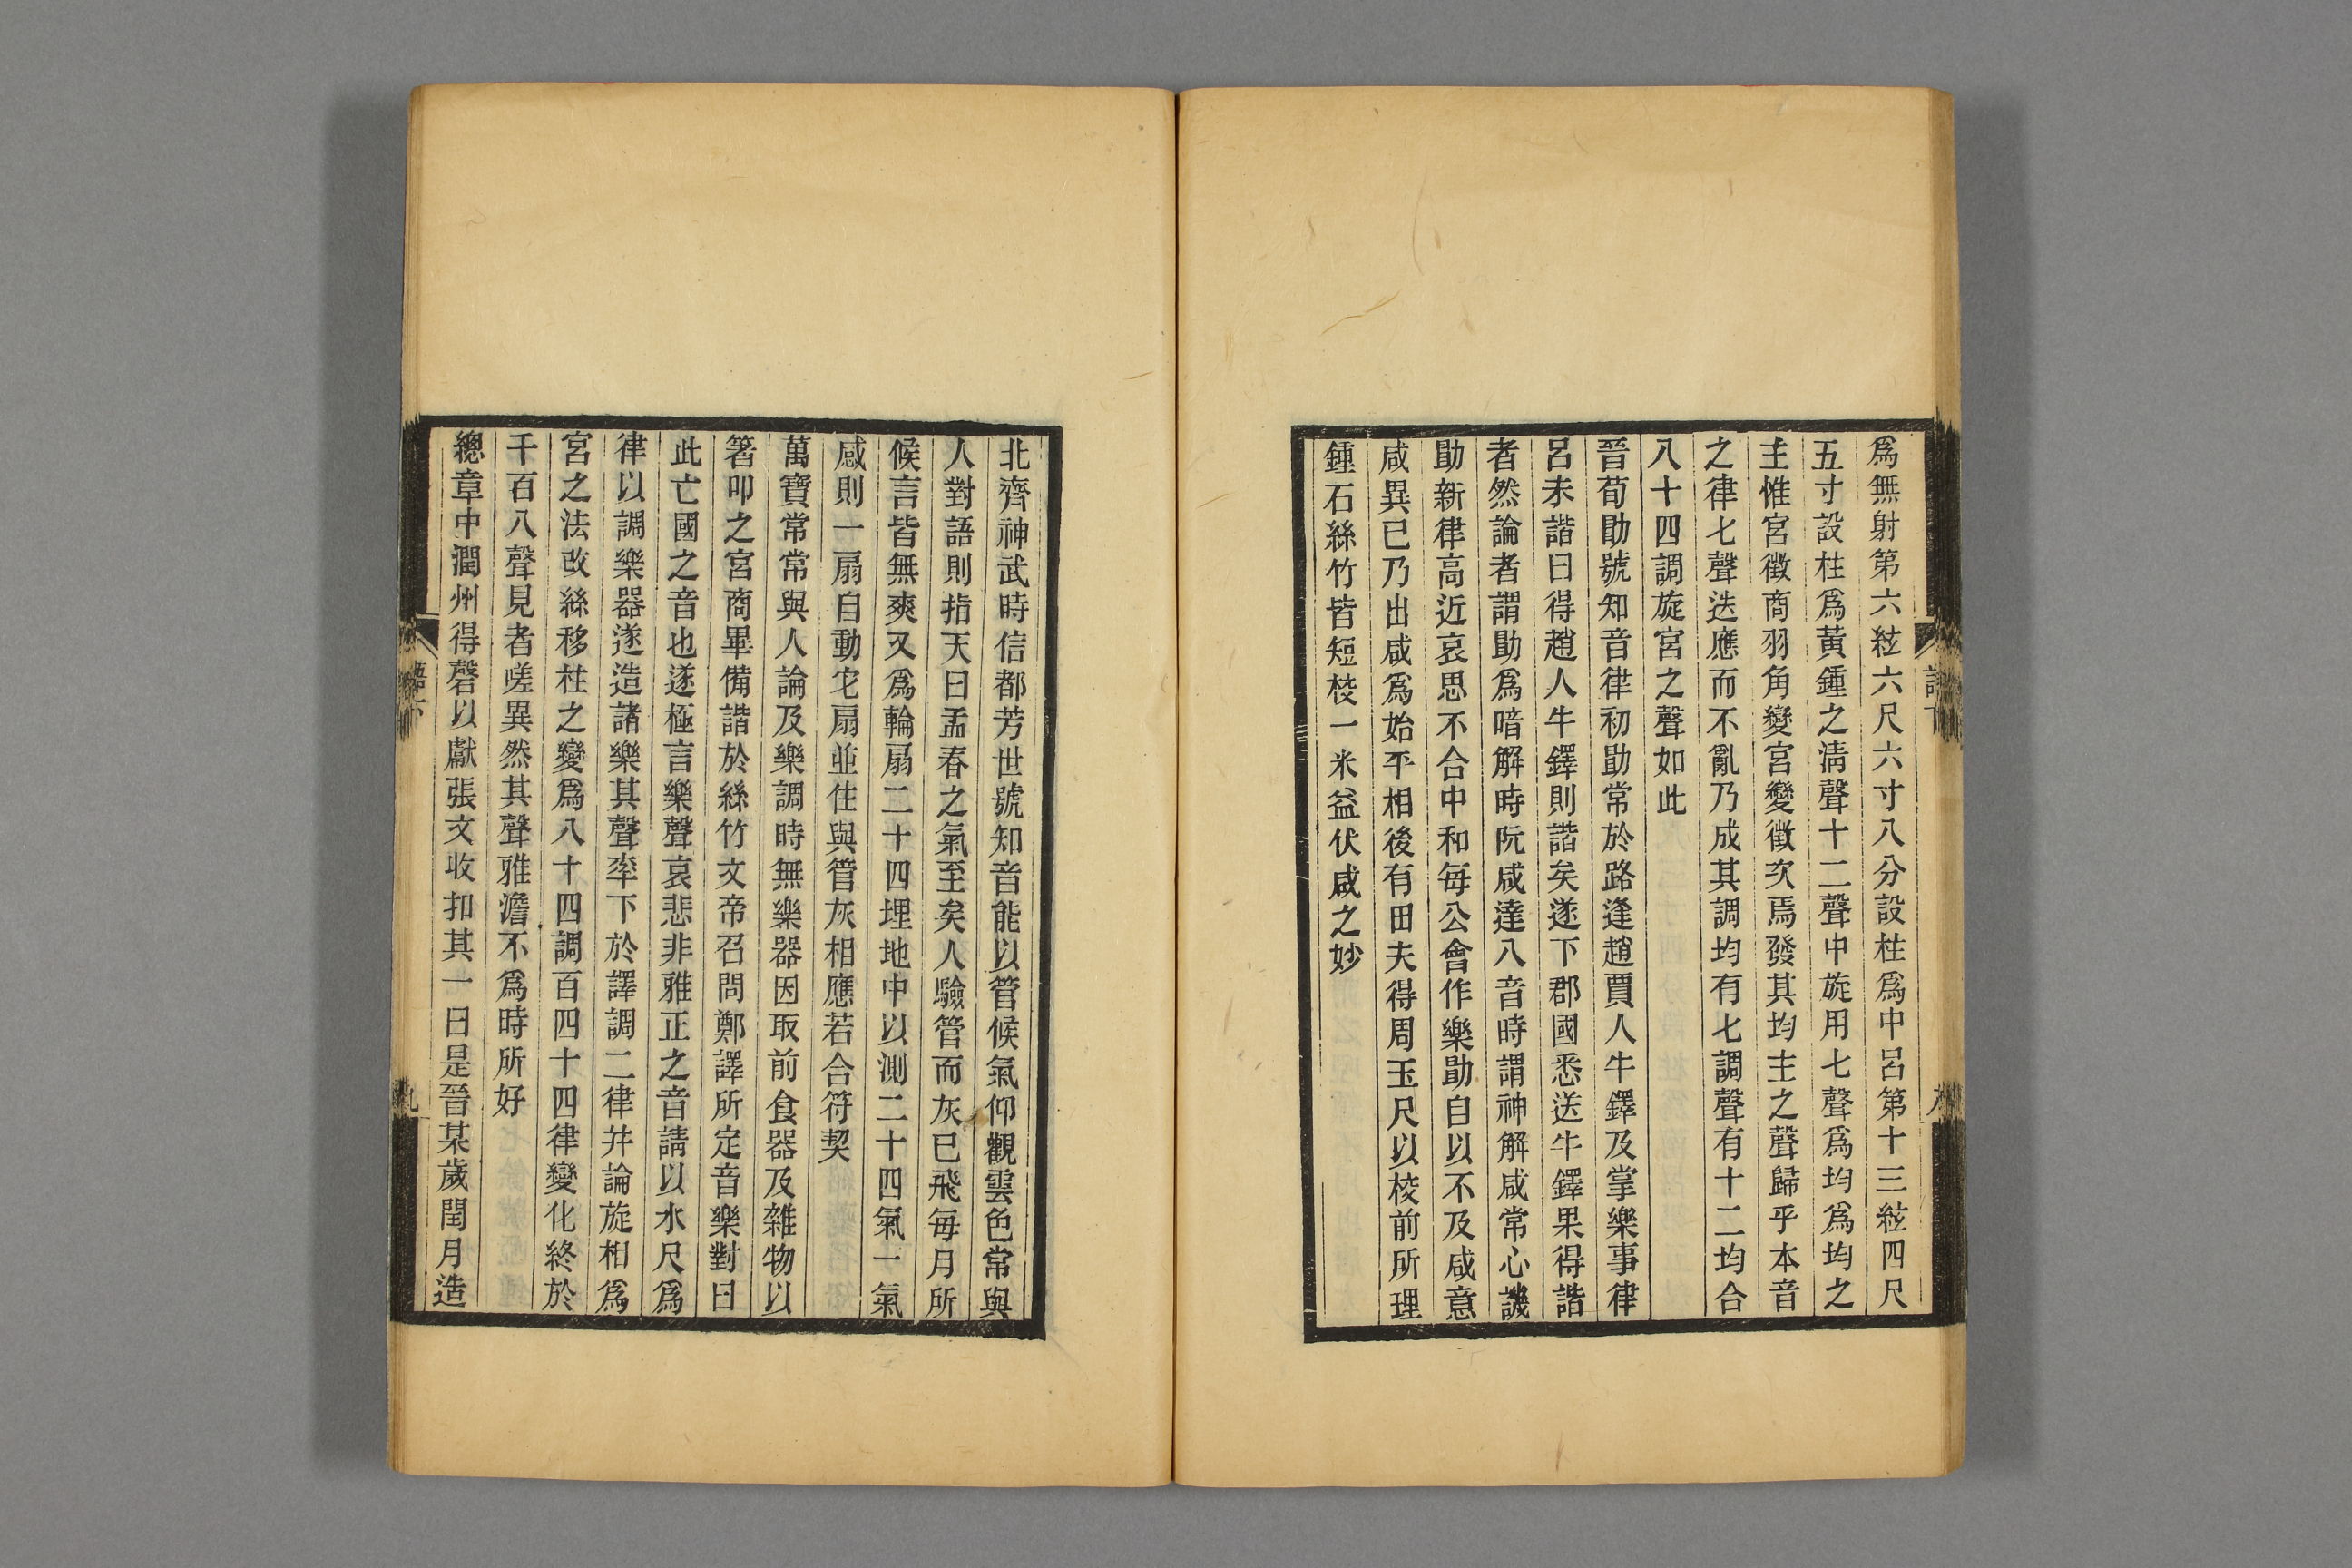 爲無射第六絃六尺六寸八分設柱爲中呂第十三絃四尺
五寸設柱爲黃鍾之淸聲十二聲中旋用七聲爲均爲均之
主惟宮徵商羽角變宮變徵次焉發其均主之聲歸乎本音
之律七聲迭應而不亂乃成其調均有七調聲有十二均合
八十四調旋宮之聲如此
晉荀勖號知音律初勖常於路逢趙賈人牛鐸及掌樂事律
呂未諧曰得趙人牛鐸則諧矣遂下郡國悉送牛鐸果得諧
者然論者謂勖爲暗解時阮咸達八音時謂神解咸常心譏
勖新律高近哀思不合中和每公會作樂勖自以不及咸意
咸異已乃出咸爲始平相後有田夫得周玉尺以校前所理
鍾石絲竹皆短校一米益伏咸之妙
語下
八
北齊神武時信都芳世號知音能以管候氣仰觀雲色常與
人對語則指天曰孟春之氣至矣人驗管而灰已飛每月所
候言皆無爽又爲輪扇二十四埋地中以測二十四氣一氣
感則一扇自動宅扇並住與管灰相應若合符契
萬寶常常與人論及樂調時無樂器因取前食器及雜物以
箸叩之宮商畢備諧於絲竹文帝召問鄭譯所定音樂對曰
此亡國之音也遂極言樂聲哀悲非雅正之音請以水尺爲
律以調樂器遂造諸樂其聲率下於譯調二律幷論旋相爲
宮之法改絲移柱之變爲八十四調百四十四律變化終於
千百八聲見者嗟異然其聲雅澹不爲時所好
總章中潤州得磬以獻張文收扣其一曰是晉某歲閏月造
語下
九